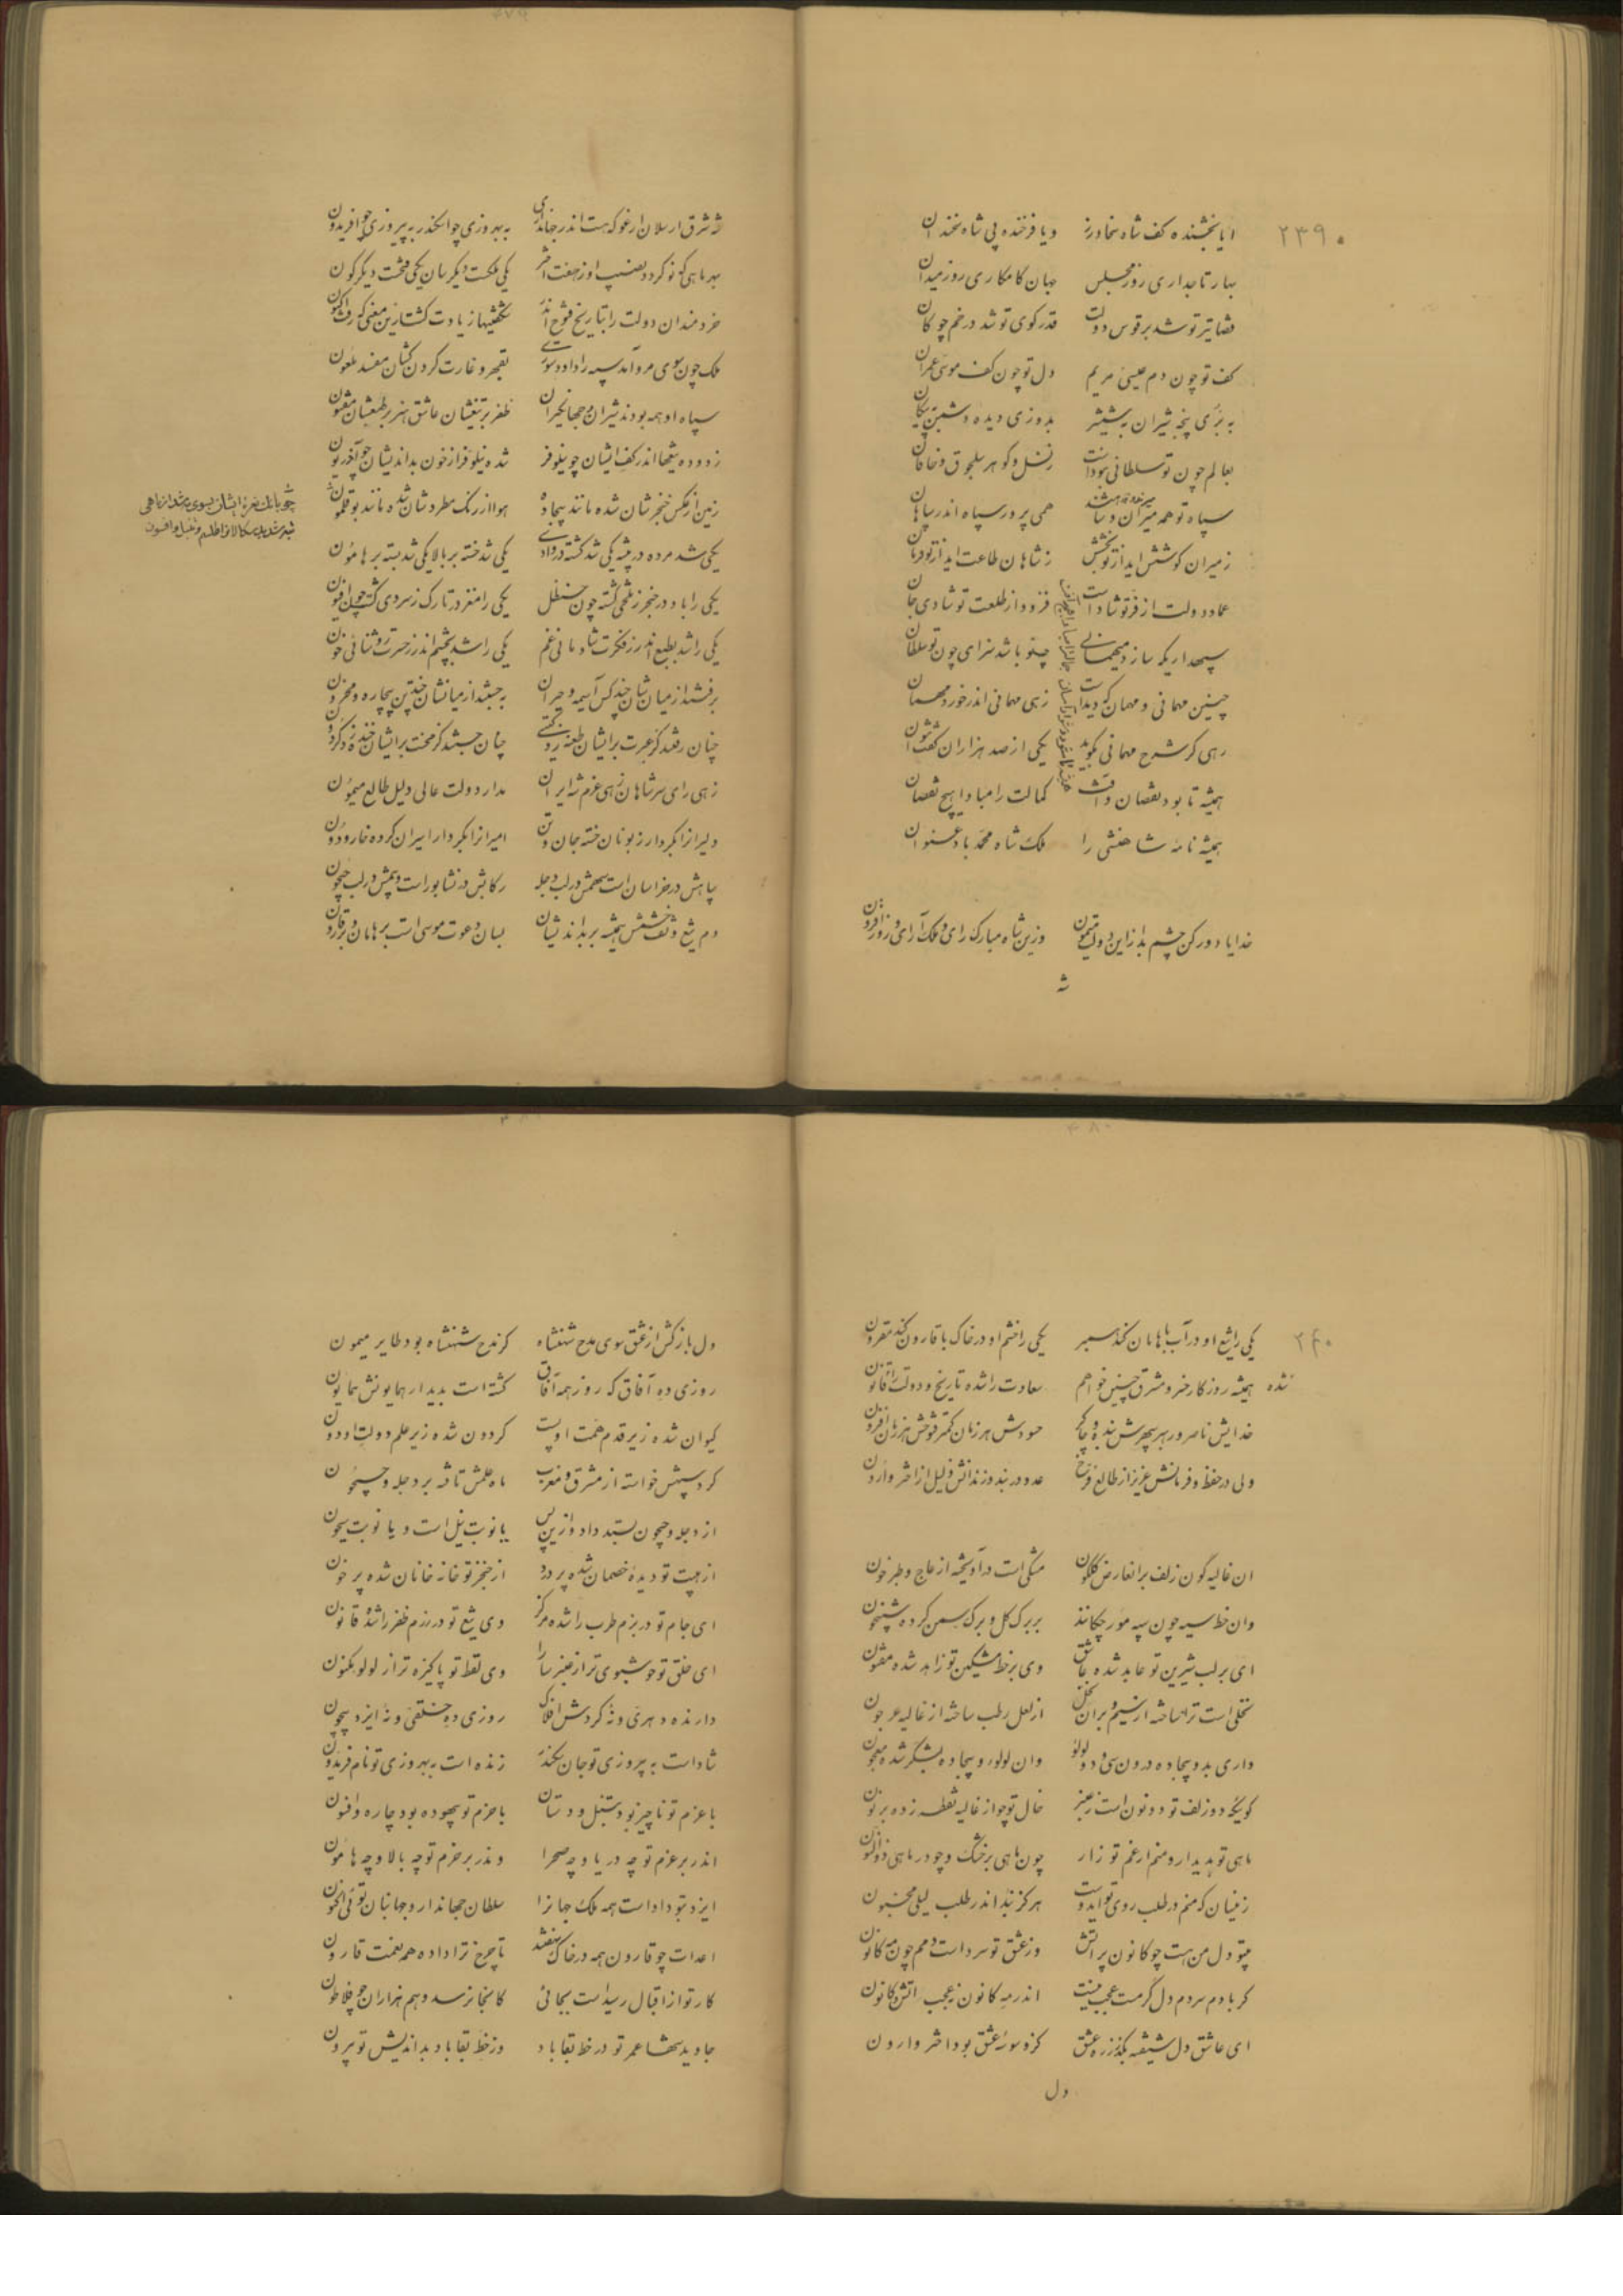 ۲۳۹۰
ایا بخشنده کف شاه سخاورز ویا فرخنده پی شاه سخندان
بهار تاجداری روز مجلس جهان کامکاری روز میدان
قضا تیر تو شد بر قوس دولت قدر کوی تو شد در خم چوکان
کف تو چون دم عیسی مریم دل تو چون کف موسی عمران
به بری پنجه شیران بشمشیر بدوزی دیده دشمن بپیکان
بعالم چون تو سلطانی نبودست ز نسل و کوهر سلجوق و خاقان
سپاه تو همه میران و شاهند همی پرور سپاه اندر سپاهان
ز میران کوشش اید از تو بخشش ز شاهان طاعت اید از تو فرمان
عماد دولت از فر تو شادست فزود از طلعت تو شادی جان
سپهداریکه سازد میهمانی چنو باشد سزای چون تو سلطان
چنین مهمانی و مهمان که دیدست زهی مهمانی اندر خورد مهمان
رهی کر شرح مهمانی بکوید یکی از صد هزاران کفت نتوان
همیشه تا بود نقصان و آفت کمالت را مبادا هیچ نقصان
همیشه نامهٔ شاهنشهی را ملک شاه محمد باد عنوان
خدایا دور کن چشم بد از این دولت میمون وزین شاه مبارک رای و ملک آرای و روزافزون
شه
شه شرق ارسلان ارغو که هست اندر جهانداری به بهروزی چو اسکندر به پیروزی چو افریدون
بهر ماهی که نو کردد نصیب او ز هفت اختر یکی ملکت دیکر سان یکی فتحست دیکر کون
خردمندان دولت را بتاریخ فتوح اندر شکفتیها زیادت کشت ازین معنی که رفت اکنون
ملک چون سوی مرو آمد سپه را داد دستوری بقهر و غارت کردن کشان مفسد ملعون
سپاه او همه بودند شیران و جهانکیران ظفر بر تیغشان عاشق هنر بر طبعشان مفتون
زدوده تیغها اندر کف ایشان چو نیلوفر شده نیلوفر از خون بداندیشان چو آذریون
زمین از عکس خنجرشان شده مانند بیجاده هوا از رنک مطردشان شده مانند بوقلمون
یکی شد مرده در بیشه یکی شد کشته در وادی یکی شد خسته بر بالا یکی شد بسته بر هامون
یکی را باد در حنجر ز تلخی کشته چون حنظل یکی را مغز در تارک ز سردی کشته چون افیون
یکی را شد بطبع اندر ز فکرت شادمانی غم یکی را شد بچشم اندر ز حسرت روشنائی خون
برفتند از میان شان چند کس آسیمه و حیران بجستند از میانشان چند تن بیچاره و محزون
چنان رفتند کز عبرت بر ایشان طعنه زد کیتی چنان جستند کز محنت بر ایشان خنده زد کردون
زهی رای سر شاهان زهی عزم شه ایران مدار دولت عالی دلیل طالع میمون
دلیرانرا بکردار زبونان خسته جان و تن امیرانرا بکردار اسیران کرده خار و دون
سپاهش در خراسان است سهمش در لب دجله رکابش در نشابور است و بیمش در لب جیحون
دم تیغ و تف خشمش همیشه بر بداندیشان بسان دعوت موسی است بر هامان و بر قارون
۲۴۰
یکی را تیغ او در آب با هامان کند همبر یکی را خشم او در خاک با قارون کند مقرون
همیشه روزکار خسرو مشرق چنین خواهم سعادت را شده تاریخ و دولت را شده قانون
خدایش ناصر و رهبر سپهرش بنده و چاکر حسودش هر زمان کمتر فتوحش هر زمان افزون
ولی در حفظ و فرمانش عزیز از طالع فرخ عدو در بند و زندانش ذلیل از اختر وارون
ان غالیه کون زلف بر انعارض کلکون مشکی است در آویخته از عاج و طبرخون
وان خط سیه چون سپه مورچکانند بر برک کل و برک سمن کرده شبیخون
ای بر لب شیرین تو عابد شده عاشق وی بر خط مشکین تو زاهد شده مفتون
نخلی است ترا ساخته از سیم و بران نخل از لعل رطب ساخته از غالیه عرجون
داری بدو بیجاده درون سی و دو لولو وان لولو و بیجاده بشکر شده معجون
کویی که دو زلف تو دو نون است ز عنبر خال تو چو از غالیه نقطه زده بر نون
ماهی تو بدیدار و منم از غم تو زار چون ماهی بر خشک و چو در ماهی ذوالنون
زینسان که منم در طلب روی تو ایدوست هرکز نبد اندر طلب لیلی مجنون
بیتو دل من هست چو کانون پر آتش وز عشق تو سرد است دمم چون مه کانون
کر با دم سردم دل کرمست عجب نیست اندر مه کانون نه عجب آتش کانون
ای عاشق دل شیفته بکذر ز ره عشق کز وسوسهٔ عشق بود اختر وارون
دل
دل بازکش از عشق سوی مدح شهنشاه کز مدح شهنشاه بود طایر میمون
روزی ده آفاق که روز همه آفاق کشته است بدیدار همایونش همایون
کیوان شده زیر قدم همت او پست کردون شده زیر علم دولت او دون
کرد سپهش خواسته از مشرق و مغرب ماه علمش تافته بر دجله و جیحون
از دجله و جیحون بستد داد و ازین پس یا نوبت نیل است و یا نوبت سیحون
از هیبت تو دیدهٔ خصمان شده پر درد از خنجر تو خانه خانان شده پر خون
ای جام تو در بزم طرب را شده مرکز وی تیغ تو در رزم ظفر را شده قانون
ای خلق تو خوشبوی تر از عنبر سارا وی لفظ تو پاکیزه تر از لولو مکنون
دارنده دهری و نه کردش افلاک روزی ده خلقی و نه ایزد بیچون
شاد است به پیروزی تو جان سکندر زنده است به بهروزی تو نام فریدون
با عزم تو ناچیز بود تنبل و دستان با حزم تو بیهوده بود چاره و افسون
اندر بر عزم تو چه دریا و چه صحرا وندر بر حزم تو چه بالا و چه هامون
ایزد بتو داداست همه ملک جهانرا سلطان جهاندار و جهانبان توئی اکنون
اعدات چو قارون همه در خاک بخفتند تا چرخ ترا داده همه نعمت قارون
کار تو از اقبال رسیداست بجائی کانجا نرسد وهم هزاران چو فلاطون
جاوید شها عمر تو در خط بقا باد وز خط بقا باد بداندیش تو بیرون